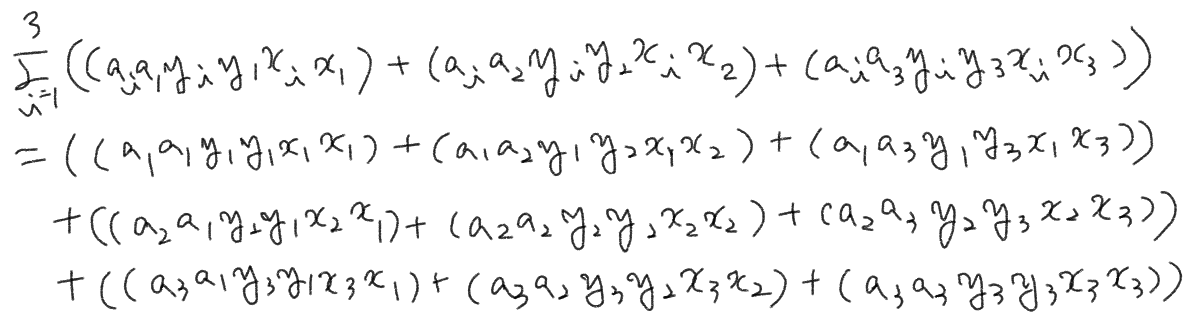 $\sum_{i=1}^{3} ((a_i a_1 y_i y_1 x_i x_1) + (a_i a_2 y_i y_2 x_i x_2) + (a_i a_3 y_i y_3 x_i x_3))$
$= ((a_1 a_1 y_1 y_1 x_1 x_1) + (a_1 a_2 y_1 y_2 x_1 x_2) + (a_1 a_3 y_1 y_3 x_1 x_3))$
$+ ((a_2 a_1 y_2 y_1 x_2 x_1) + (a_2 a_2 y_2 y_2 x_2 x_2) + (a_2 a_3 y_2 y_3 x_2 x_3))$
$+ ((a_3 a_1 y_3 y_1 x_3 x_1) + (a_3 a_2 y_3 y_2 x_3 x_2) + (a_3 a_3 y_3 y_3 x_3 x_3))$